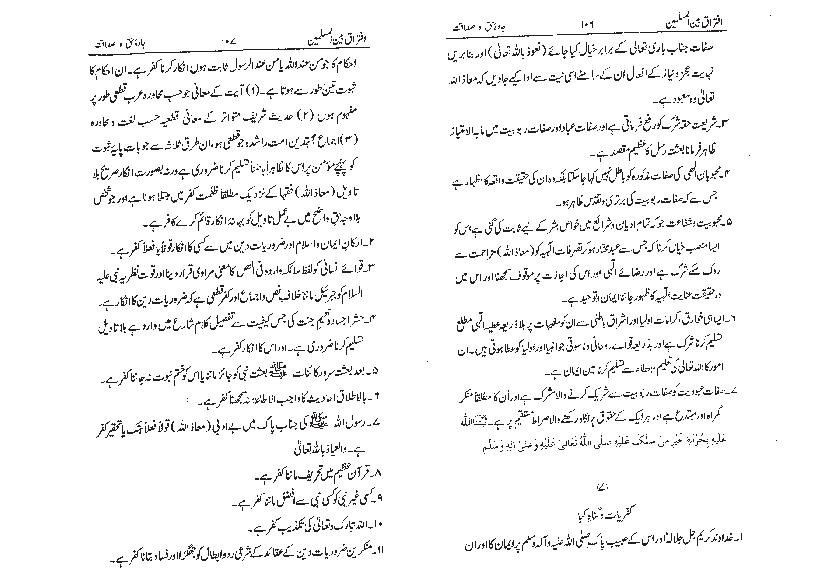 افتراق بین المسلمین ۱۰۶ جادۂ حق و صداقت
صفات جناب باری تعالیٰ کے برابر خیال کیا جائے (نعوذ باللہ تعالیٰ) اور بنا بریں
نہایت عجز و نیاز کے افعال اُن کے سامنے اسی نیت سے ادا کیے جاویں کہ معاذ اللہ
تعالیٰ وہ معبود ہے۔
۳۔ شریعت حقہ شرک کو رفع فرماتی ہے اور صفات عباد اور صفات ربوبیت میں ما بہ الامتیاز
ظاہر فرمانا بعثت رسل کا عظیم مقصد ہے۔
۴۔ محبوبان الٰہی کی صفات مذکورہ کو باطل نہیں کہا جا سکتا بلکہ وہ ان کی حقیقت واقعہ کا اظہار ہے
جس سے کہ صفات ربوبیت کی برتری و تقدس ظاہر ہو۔
۵۔ محبوبیت و شفاعت جو کہ تمام ادیان و شرائع میں خواص بشر کے لیے ثابت کی گئی ہے، اس کو
ایسا منصب خیال کرنا کہ جس سے عبد مختار ہو کر تصرفات الٰہیہ کو (معاذ اللہ) مزاحمت سے
روک سکے شرک ہے اور رضائے الٰہی اور اس کی اجازت پر موقوف سمجھنا اور اس میں
در حقیقت عنایت الٰہیہ کا ظہور جاننا ایمان و توحید ہے۔
۶۔ ایسا ہی خوارق، کرامات اولیا اور اشراق باطنی سے ان کو مغیبات پر بلا ذریعہ عطیہ الٰہی مطلع
تسلیم کرنا شرک ہے اور بذریعہ قوائے روحانی و ناسوتی جو انبیا اور اولیا کو عطا ہوتی ہیں۔ ان
امور کا اللہ تعالیٰ کی تعلیم و عطاء سے تسلیم کرنا عین ایمان ہے۔
۷۔ صفات عبودیت کو صفات ربوبیت سے شریک کرنے والا مشرک ہے اور اُن کا مطلقاً منکر
گمراہ اور مبتدع ہے اور ہر ایک کے حقوق پر نگاہ رکھنے والا صراط مستقیم پر ہے۔
علیہ صلی اللہ تعالیٰ علیہ وعلیٰ آلہ وسلم
(۷)
کفریات و گناہ کیا
۱۔ خداوند کریم جل جلالہ اور اس کے حبیب پاک صلی اللہ علیہ وآلہ وسلم پر ایمان کا اور ان
افتراق بین المسلمین ۱۰۷ جادۂ حق و صداقت
احکام کا جو من عند اللہ یا من عند الرسول ثابت ہوں، انکار کرنا کفر ہے۔ ان احکام کا
ثبوت تین طور سے ہوتا ہے۔ (۱) آیت کے معانی جو حسب محاورہ عرب قطعی طور پر
مفہوم ہوں (۲) حدیث شریف متواتر کے معانی قطعیہ حسب لغت و محاورہ
(۳) اجماع مجتہدین امت راشدہ جو قطعی ہو، ان طرق ثلاثہ سے جو بات پایۂ ثبوت
کو پہنچے مؤمن پر اس کا ظاہراً باطناً تسلیم کرنا ضروری ہے ورنہ بصورت انکار صریح بلا
تاویل (معاذ اللہ) فقہا کے نزدیک مطلقاً ظلمت کفر میں مبتلا ہونا ہے اور جو شخص
بلا وجہ حق واضح میں بے عمل تاویل کو بہانہ انکار قائم کرے کافر ہے۔
۲۔ ارکان ایمان و اسلام اور ضروریات دین میں سے کسی کا انکار قولاً یا فعلاً کفر ہے۔
۳۔ قوائے انسانی کو لفظ ملائکہ واردہ فی النص کا معنی مرادی قرار دینا اور قوت نظریہ نبی علیہ
السلام کو جبرئیل ماننا خلاف نص و اجماع اور کفر قطعی ہے کہ ضروریات دین کا انکار ہے۔
۴۔ حشر اجساد و نعیم جنت کی جس کیفیت سے تفصیل کلام شارع میں وارد ہے بلا تاویل
تسلیم کرنا ضروری ہے۔ اور اس کا انکار کفر ہے۔
۵۔ بعد بعثت سرور کائنات ﷺ بعثت نبی کو جائز ماننا یا اس کو ختم نبوت نہ جاننا کفر ہے۔
۶۔ بالاطلاق احادیث کا واجب الاطاعۃ نہ سمجھنا کفر ہے۔
۷۔ رسول اللہ ﷺ کی جناب پاک میں بے ادبی (معاذ اللہ) قولاً فعلاً ہتک یا تحقیر کفر
ہے۔ والعیاذ باللہ تعالیٰ
۸۔ قرآن عظیم میں تحریف ماننا کفر ہے۔
۹۔ کسی غیر نبی کو کسی نبی سے افضل ماننا کفر ہے۔
۱۰۔ اللہ تبارک و تعالیٰ کی تکذیب کفر ہے۔
۱۱۔ منکرین ضروریات دین کے عقائد کے شرعی رد و ابطال کو جھگڑا اور فساد بتانا کفر ہے۔